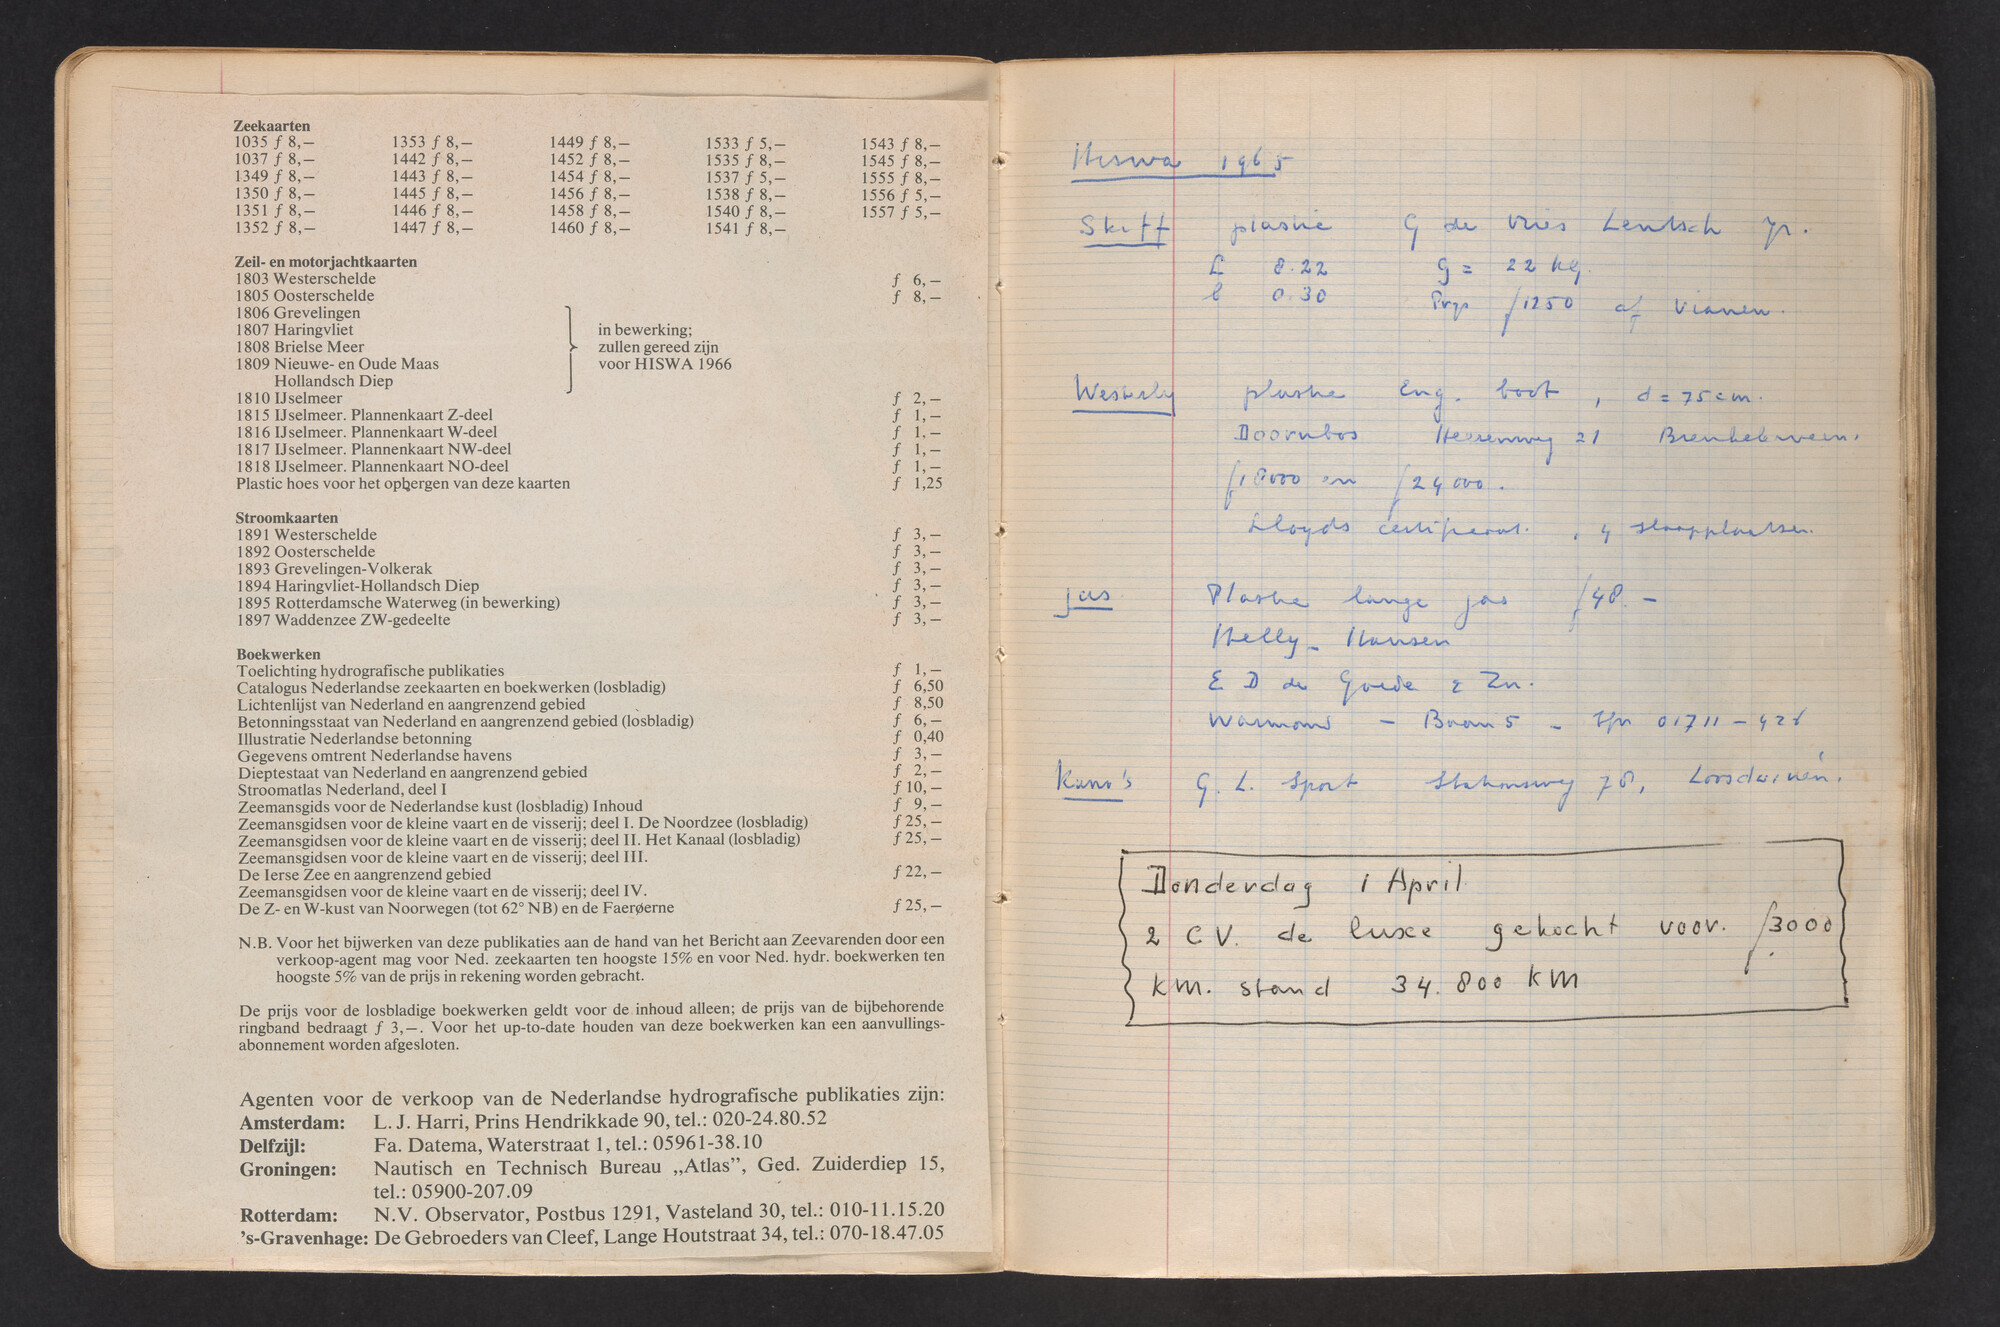 Zeekaarten
1035 ƒ 8,— 1353 ƒ 8,— 1449 ƒ 8,— 1533 ƒ 5,— 1543 ƒ 8,—
1037 ƒ 8,— 1442 ƒ 8,— 1452 ƒ 8,— 1535 ƒ 8,— 1545 ƒ 8,—
1349 ƒ 8,— 1443 ƒ 8,— 1454 ƒ 8,— 1537 ƒ 5,— 1555 ƒ 8,—
1350 ƒ 8,— 1445 ƒ 8,— 1456 ƒ 8,— 1538 ƒ 8,— 1556 ƒ 5,—
1351 ƒ 8,— 1446 ƒ 8,— 1458 ƒ 8,— 1540 ƒ 8,— 1557 ƒ 5,—
1352 ƒ 8,— 1447 ƒ 8,— 1460 ƒ 8,— 1541 ƒ 8,—
Zeil- en motorjachtkaarten
1803 Westerschelde ƒ 6,—
1805 Oosterschelde ƒ 8,—
1806 Grevelingen
1807 Haringvliet in bewerking;
1808 Brielse Meer zullen gereed zijn
1809 Nieuwe- en Oude Maas voor HISWA 1966
Hollandsch Diep
1810 IJselmeer ƒ 2,—
1815 IJselmeer. Plannenkaart Z-deel ƒ 1,—
1816 IJselmeer. Plannenkaart W-deel ƒ 1,—
1817 IJselmeer. Plannenkaart NW-deel ƒ 1,—
1818 IJselmeer. Plannenkaart NO-deel ƒ 1,—
Plastic hoes voor het opbergen van deze kaarten ƒ 1,25
Stroomkaarten
1891 Westerschelde ƒ 3,—
1892 Oosterschelde ƒ 3,—
1893 Grevelingen-Volkerak ƒ 3,—
1894 Haringvliet-Hollandsch Diep ƒ 3,—
1895 Rotterdamsche Waterweg (in bewerking) ƒ 3,—
1897 Waddenzee ZW-gedeelte ƒ 3,—
Boekwerken
Toelichting hydrografische publikaties ƒ 1,—
Catalogus Nederlandse zeekaarten en boekwerken (losbladig) ƒ 6,50
Lichtenlijst van Nederland en aangrenzend gebied ƒ 8,50
Betonningsstaat van Nederland en aangrenzend gebied (losbladig) ƒ 6,—
Illustratie Nederlandse betonning ƒ 0,40
Gegevens omtrent Nederlandse havens ƒ 3,—
Dieptestaat van Nederland en aangrenzend gebied ƒ 2,—
Stroomatlas Nederland, deel I ƒ 10,—
Zeemansgids voor de Nederlandse kust (losbladig) Inhoud ƒ 9,—
Zeemansgidsen voor de kleine vaart en de visserij; deel I. De Noordzee (losbladig) ƒ 25,—
Zeemansgidsen voor de kleine vaart en de visserij; deel II. Het Kanaal (losbladig) ƒ 25,—
Zeemansgidsen voor de kleine vaart en de visserij; deel III.
De Ierse Zee en aangrenzend gebied ƒ 22,—
Zeemansgidsen voor de kleine vaart en de visserij; deel IV.
De Z- en W-kust van Noorwegen (tot 62° NB) en de Faerøerne ƒ 25,—
N.B. Voor het bijwerken van deze publikaties aan de hand van het Bericht aan Zeevarenden door een
verkoop-agent mag voor Ned. zeekaarten ten hoogste 15% en voor Ned. hydr. boekwerken ten
hoogste 5% van de prijs in rekening worden gebracht.
De prijs voor de losbladige boekwerken geldt voor de inhoud alleen; de prijs van de bijbehorende
ringband bedraagt ƒ 3,—. Voor het up-to-date houden van deze boekwerken kan een aanvullings-
abonnement worden afgesloten.
Agenten voor de verkoop van de Nederlandse hydrografische publikaties zijn:
Amsterdam: L. J. Harri, Prins Hendrikkade 90, tel.: 020-24.80.52
Delfzijl: Fa. Datema, Waterstraat 1, tel.: 05961-38.10
Groningen: Nautisch en Technisch Bureau „Atlas”, Ged. Zuiderdiep 15,
tel.: 05900-207.09
Rotterdam: N.V. Observator, Postbus 1291, Vasteland 30, tel.: 010-11.15.20
's-Gravenhage: De Gebroeders van Cleef, Lange Houtstraat 34, tel.: 070-18.47.05
Hiswa 1965
Skiff plastic G de Vries Lentsch Jr.
L 8.22 G = 22 kg.
b 0.30 Prijs ƒ1250 af Vianen.
Westerly plastic Eng. boot, d = 75 cm.
Doornbos Heerenweg 21
ƒ18000 en ƒ24000.
Lloyds certificaat, 4 slaapplaatsen.
jas Plastic lange jas ƒ48.—
Helly-Hansen
E D de Goede & Zn.
Warmond — Baan 5 — tfn 01711-426
Kano's G. L. Sport Stationsweg 78, Loosduinen.
Donderdag 1 April
2 CV. de luxe gekocht voor. ƒ3000
KM. stand 34.800 KM